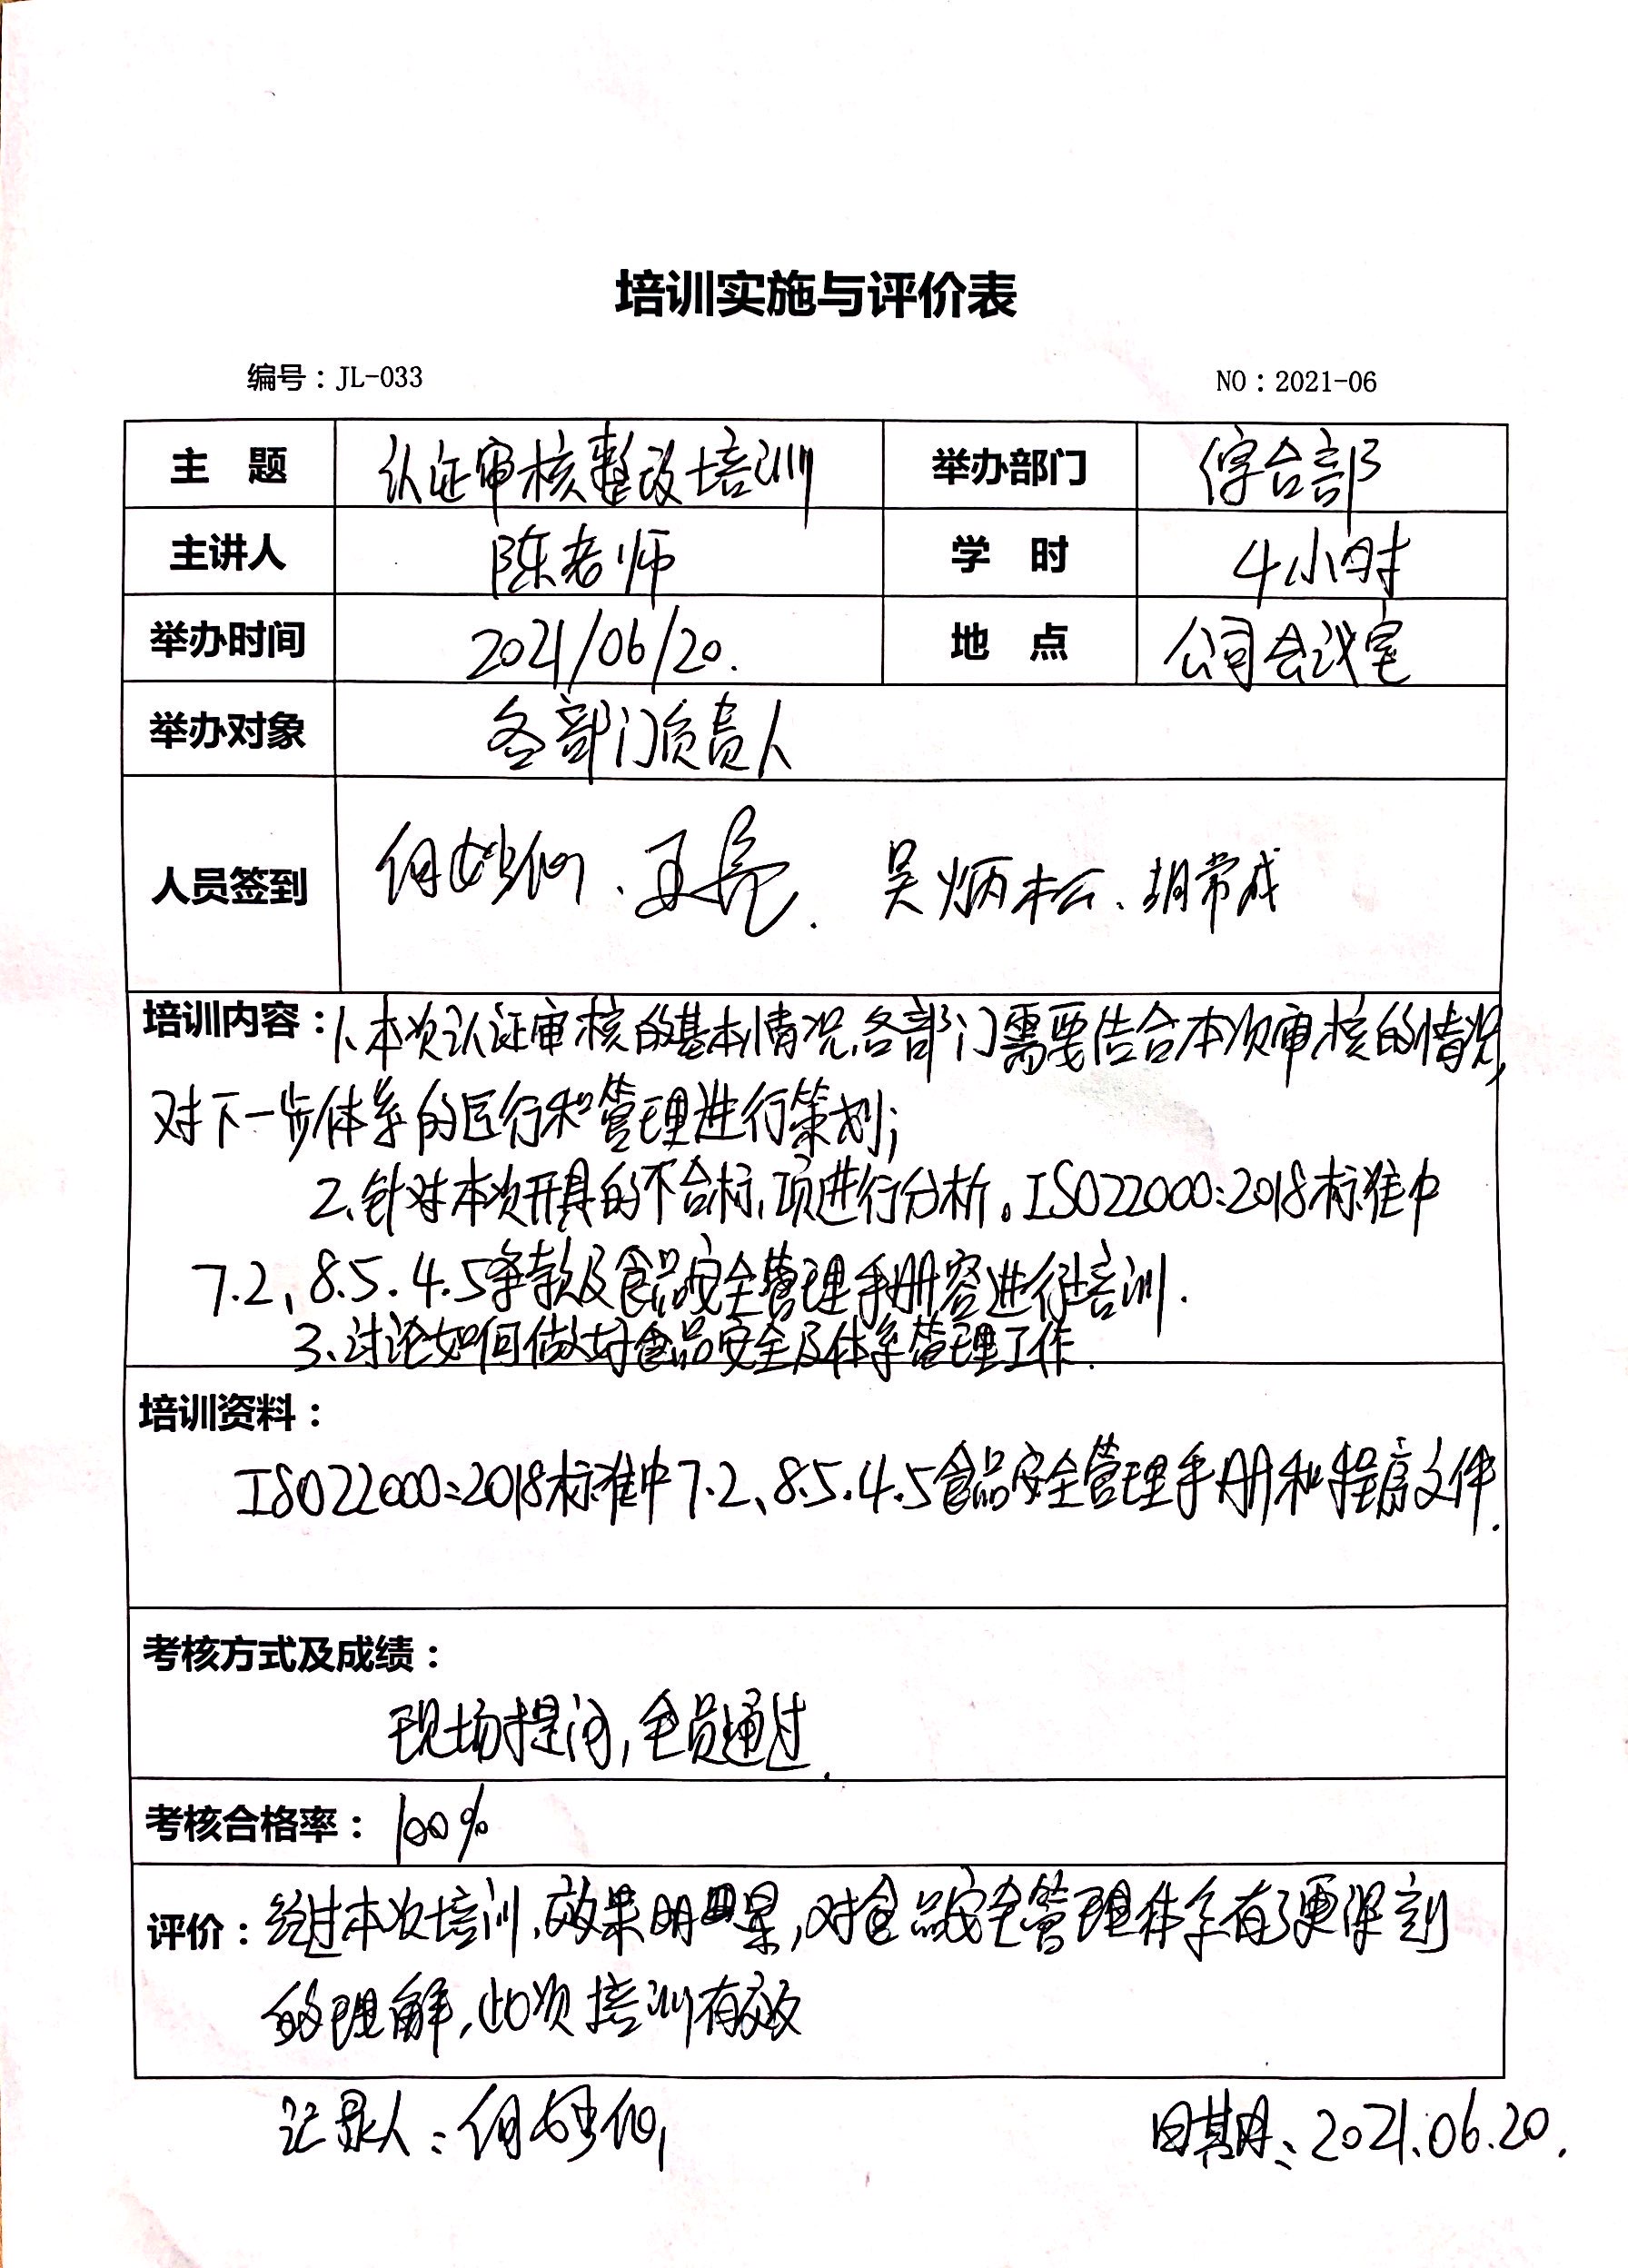 培训实施与评价表
编号：JL-033 NO：2021-06
主 题 认证审核整改培训 举办部门 综合部
主讲人 陈老师 学 时 4小时
举办时间 2021/06/20. 地 点 公司会议室
举办对象 各部门负责人
人员签到 何妙仙、王亮. 吴炳松、胡常成
培训内容：1、本次认证审核的基本情况,各部门需要结合本次审核的情况,
对下一步体系的运行和管理进行策划;
2、针对本次开具的不合标,项进行分析。ISO22000:2018标准中
7.2、8.5.4.5条款及食品安全管理手册容进行培训.
3、讨论如何做好食品安全及体系管理工作.
培训资料：
ISO22000:2018标准中7.2、8.5.4.5食品安全管理手册和程序文件.
考核方式及成绩：
现场提问,全员通过.
考核合格率：100%
评价：经过本次培训,效果明显,对食品安全管理体系有了更深刻
的理解,此次培训有效
记录人：何妙仙 日期：2021.06.20.